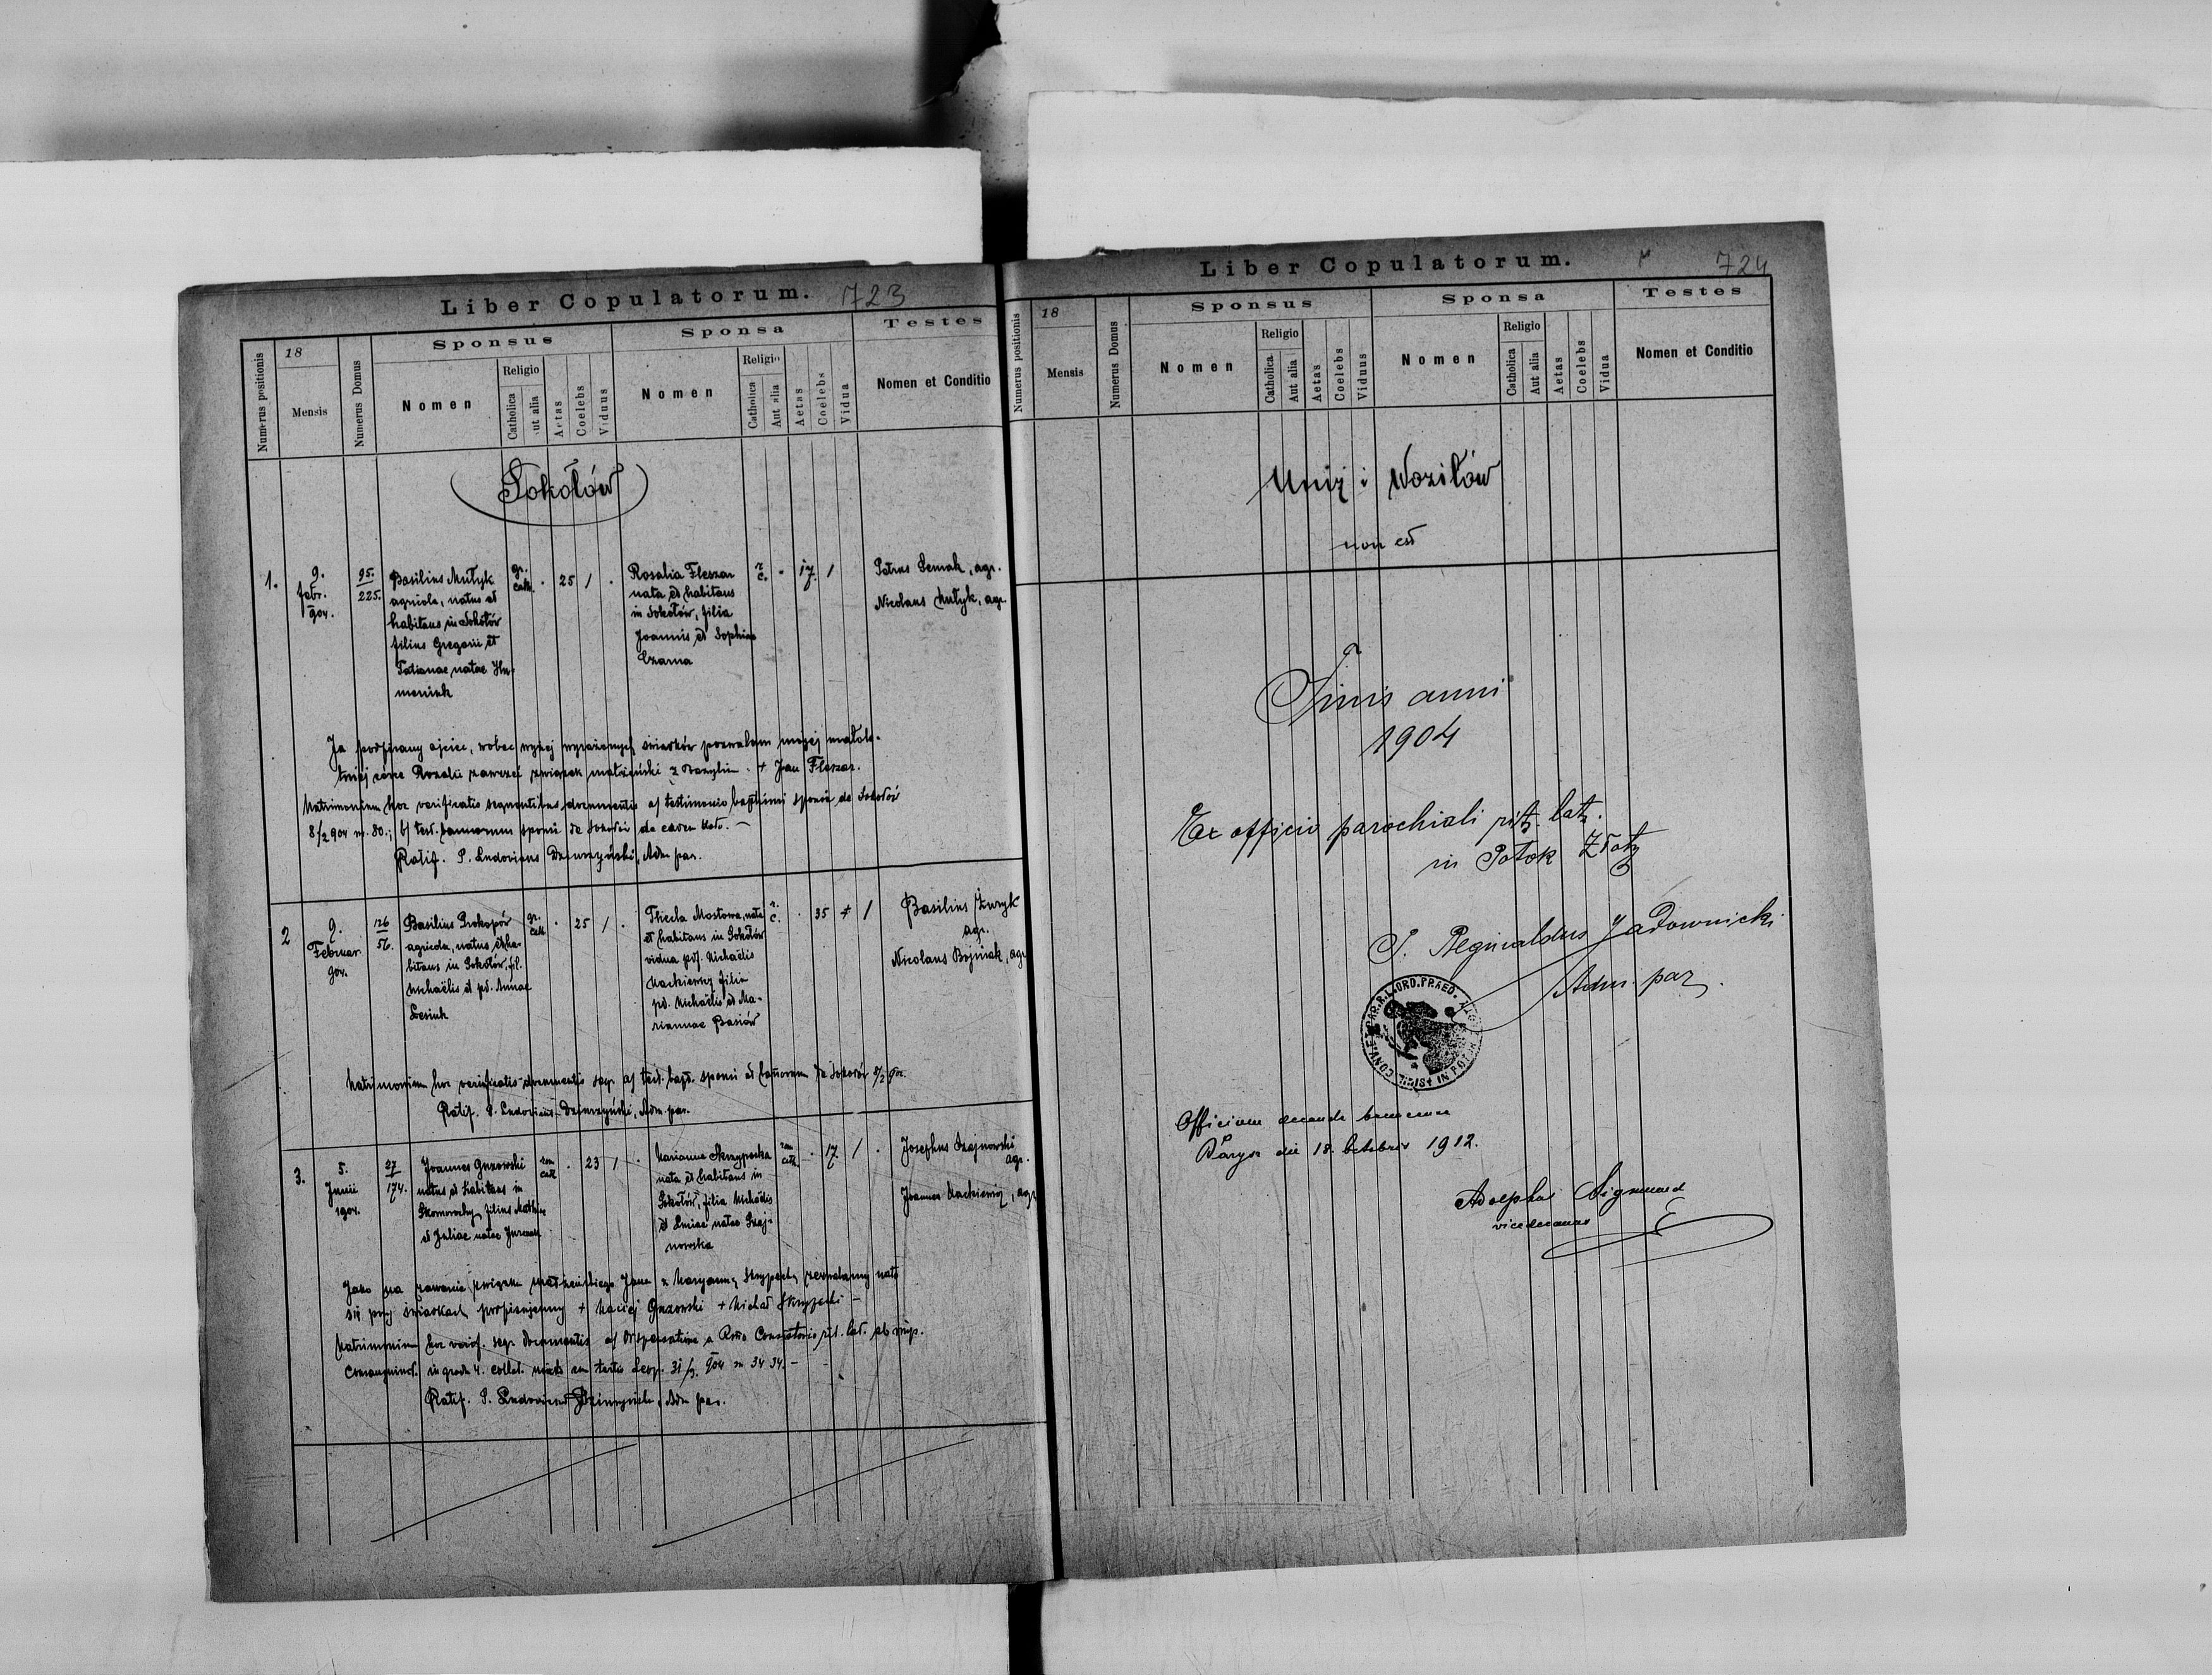 Liber Copulatorum. 723
Numerus positionis
18
Mensis
Numerus Domus
Sponsus
Nomen
Religio
Catholica
Aut alia
Aetas
Coelebs
Viduus
Sponsa
Nomen
Religio
Catholica
Aut alia
Aetas
Coelebs
Vidua
Testes
Nomen et Conditio
Sokołów
1.
9.
febr.
904.
95.
225.
Basilius Mułyk
agricola, natus et
habitans in Sokołów
filius Gregorii et
Tatianae natae Hu-
meniuk
gr.
cath.
25
1
Rosalia Fleszar
nata et habitans
in Sokołów, filia
Joannis et Sophiae
Czarna
r.
c.
17.
1
Petrus Semak, agr.
Nicolaus Mułyk, agr.
Ja podpisany ojciec, wobec wyżej wyrażonych świadków pozwalam mojej małole-
tniej córce Rozalii zawrzeć związek małżeński z Bazylim. + Jan Fleszar.
Matrimonium hoc verificatis sequentibus documentis a/ testimonio baptismi sponsi de Sokołów
8/2 904 n. 80.; b/ test. bannorum sponsi de Sokołów de eadem dato. —
Ratif. P. Ludovicus Dziurzyński, Adm par.
2
9.
Februar.
904.
126
56.
Basilius Prokopów
agricola, natus et ha-
bitans in Sokołów, fil.
Michaëlis et pd. Annae
Lesiuk
gr.
cath.
25
1
Thecla Mostowa, nata
et habitans in Sokołów
vidua pd. Michaëlis
Mackiewicz filia
pd. Michaëlis et Ma-
riannae Basiów
r.
c.
35
1
Basilius Żuryk
agr.
Nicolaus Bojniak, agr.
Matrimonium hoc verificatis documentis seqr. a/ test. bapt. sponsi et bannorum de Sokołów 8/2 904.
Ratif. P. Ludovicus Dziurzyński, Adm. par.
3.
5.
Junii
1904.
27
174.
Joannes Guzowski
natus et habitans in
Skomorochy, filius Mathiae
et Juliae natae
rom
cath
23
1
Marianna Skrzypecka
nata et habitans in
Sokołów, filia Michaëlis
et natae Szaj-
nowska
rom
cath.
17.
1
Josephus Szajnowski
agr.
Joannes Mackiewicz, agr
Jako na zawarcie związku małżeńskiego Jana z Maryanną Skrzypecką zezwalamy nato
się przy świadkach podpisujemy + Maciej Guzowski + Michał Skrzypecki —
Matrimonium hoc verif. seqr. documentis a/ dispensatione a Rmo Consistorio rit. lat. ab imp.
Consanguinit. in gradu 4. collat. mixto cum tertio Leop. 31/5. 904 n 3434. —
Ratif. P. Ludovicus Dziurzyński, Adm par.
Liber Copulatorum. 724
Numerus positionis
18
Mensis
Numerus Domus
Sponsus
Nomen
Religio
Catholica
Aut alia
Aetas
Coelebs
Viduus
Sponsa
Nomen
Religio
Catholica
Aut alia
Aetas
Coelebs
Vidua
Testes
Nomen et Conditio
Uniż i Woziłów
non est
Finis anni
1904
Ex officio parochiali rit. lat.
in Potok Złoty
P. Reginaldus Jadownicki
Adm. par.
Officium
die 18. Octobris 1912.
Adolphus Sigmund
vicedecanus